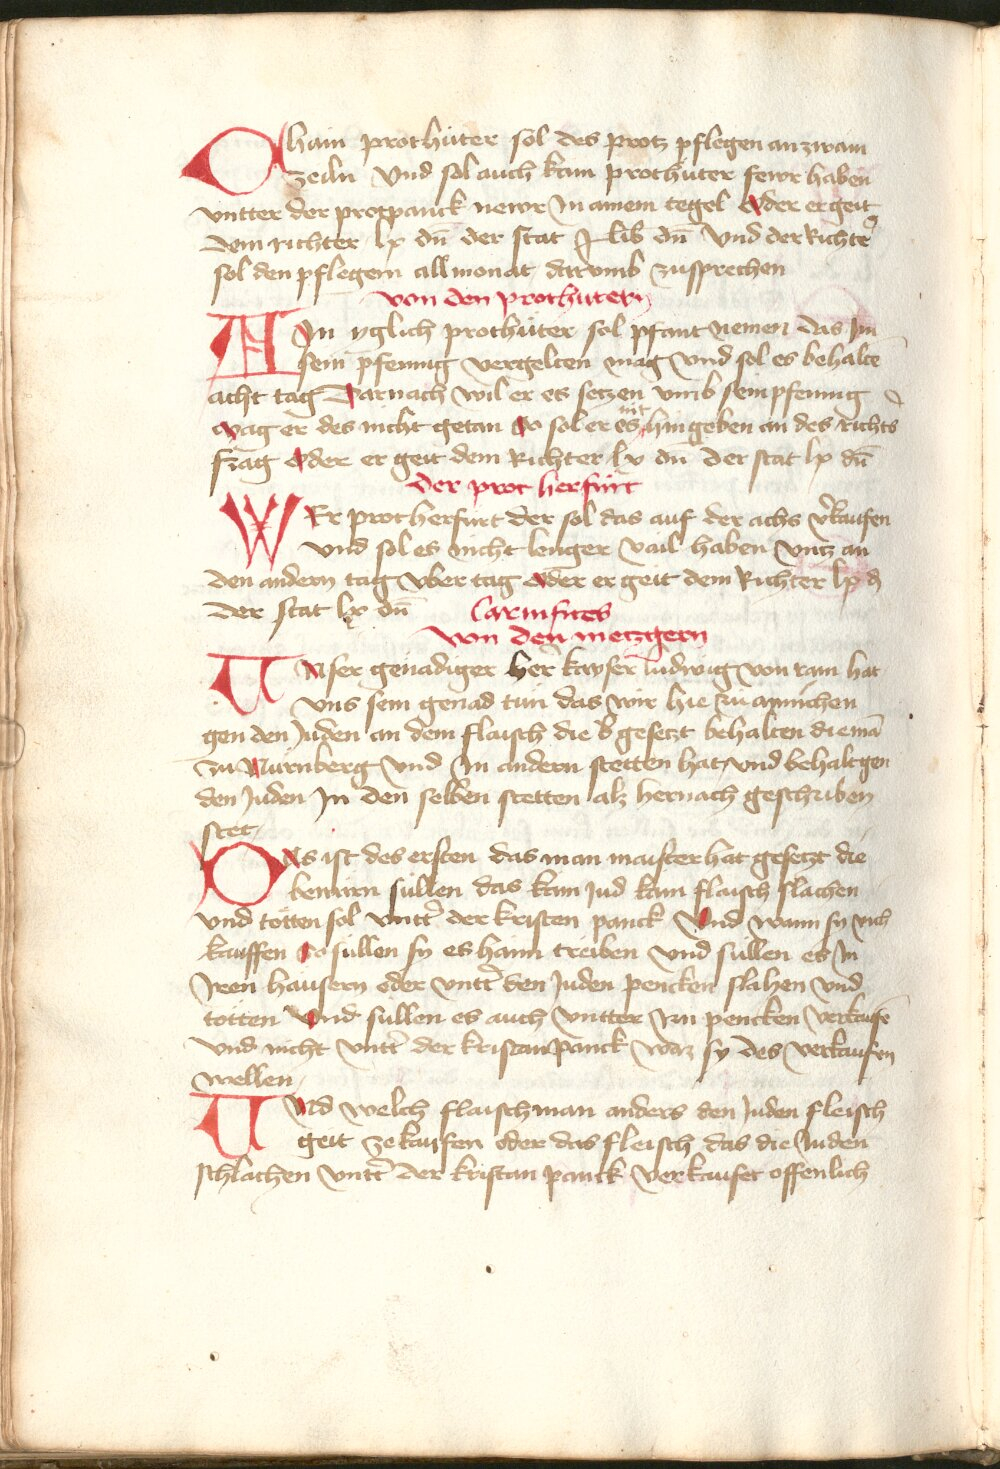 Chain prothüter sol des protz pflegen an zwain
zeiln Und sol auch kain prothüter fewr haben
vntter der protpanck newr In ainem tegel Oder er geit
dem richter lx dñ der stat j lib dñ Und der Richter
sol den pflegern all monat darumb zusprechen
von den prothutern
Ain yglich prothüter sol pfant nemen das Im
sein pfennig vergelten mag Vnd sol es behaltē
acht tag Darnach wil er es setzen vmb sein pfennig
Mag er des nicht getan So sol er es nit hin geben an des richts
frag Oder er geit dem Richter lx dñ der stat lx dñ
der prot herfürt
WEr prot herfurt der sol das auf der achs v̉kaufen
Und sol es nicht lenger vail haben vntz an
den andern tag vber tag Oder er geit dem Richter lx d
der stat lx dñ Carnifices
von den metzgern
Unser genadiger her kayser ludwig von ram hat
vns sein genad tun das wir hie zu münchen
gen den Juden an dem flaisch die v̉gesetzt behalten die mā
zu Nurnberg Vnd in andern stetten hat vnd behalt gen
den Juden In den selben stetten alz hernach geschriben
stet
Das ist des ersten das man maister hat gesetzt die
bewarn süllen das kain Jud kain flaisch slachen
und totten sol vnttr̉ der kristen panck Und wann sy vich
kauffen So sullen sy es haim treiben vnd sullen es In
Iren hausern oder vnttr̉ den Juden pencken slahen vnd
totten Und sullen es auch vntter Irn pencken verkaufē
vnd nicht vnttr̉ der kristan panck waz sy des verkaufen
wellen
Und welch flaischman anders den Juden fleisch
geit ze kaufen oder das fleisch das die Juden
schlachen vnttr̉ der kristan panck verkaufet offenlich